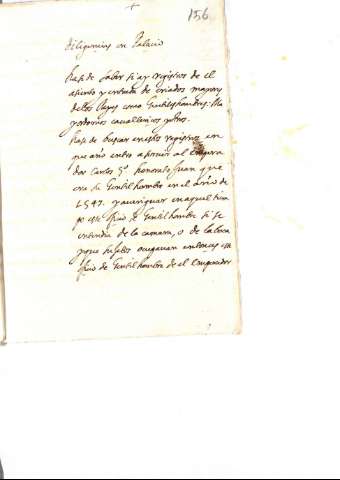 156
diligencias en Palacio
hase de saber si ay registros de el
asiento y entrada de criados mayores
de los Reyes como Gentiles hombres, Ma
yordomos cavallerizos y otros.
hase de buscar en estos registros en
que año entro a servir al Empera
dor Carlos 5º honorato Juan que
era su Gentil hombre en el año de
1547. y averiguar en aquel tiem
po este oficio de Gentil hombre si se
entendia de la camara, o de la boca
y que sujetos ocupavan entonces este
oficio de Gentil hombre de el Emperador